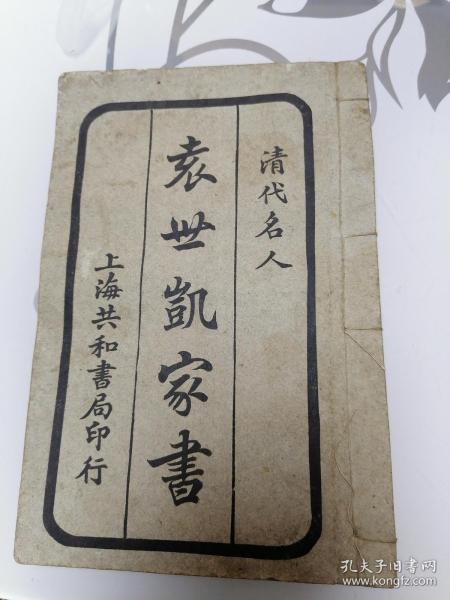 清代名人
袁世凱家書
上海共和書局印行
孔夫子旧书网
www.kongfz.com